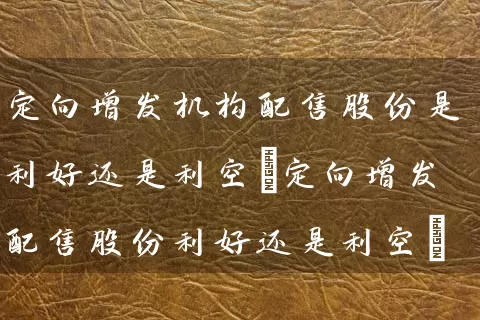 定向增发机构配售股份是
利好还是利空 定向增发
配售股份利好还是利空